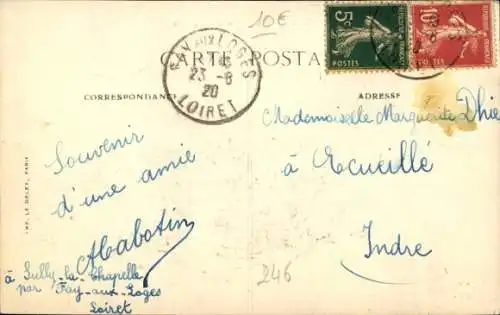 10€
CARTE POSTALE
FAY AUX LOGES
23 - 8
20
LOIRET
5c
POSTES
10c
CORRESPONDANCE
ADRESSE
Mademoiselle Marguerite Dhie
à Ecueillé
Indre
Souvenir
d'une amie
AHabotin
à Sully-la-Chapelle
par Fay-aux-Loges
Loiret
246
IMP. LE DELEY, PARIS